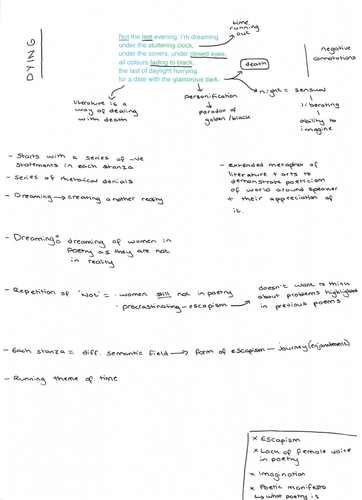 DYING
time
running
out
Not the last evening. I'm dreaming
under the stuttering clock,
under the covers, under closed eyes,
all colours fading to black,
the last of daylight hurrying
for a date with the glamorous dark.
death
negative
connotations
night = sensual
liberating
ability to
imagine
literature is a
way of dealing
with death
personification
paradox of
golden / black
- Starts with a series of -ve
statements in each stanza
- series of rhetorical denials
- Dreaming → creating another reality
- extended metaphor of
literature + arts to
demonstrate poeticism
of world around speaker
+ their appreciation of
it.
- Dreaming: dreaming of women in
poetry as they are not
in reality
- Repetition of 'Not' = · women still not in poetry
· procrastinating - escapism →
doesn't want to think
about problems highlighted
in previous poems
- Each stanza = diff. semantic field → form of escapism - journey (enjambement)
- Running theme of time
× Escapism
× Lack of female voice
in poetry
× Imagination
× Poetic manifesto
↳ what poetry is